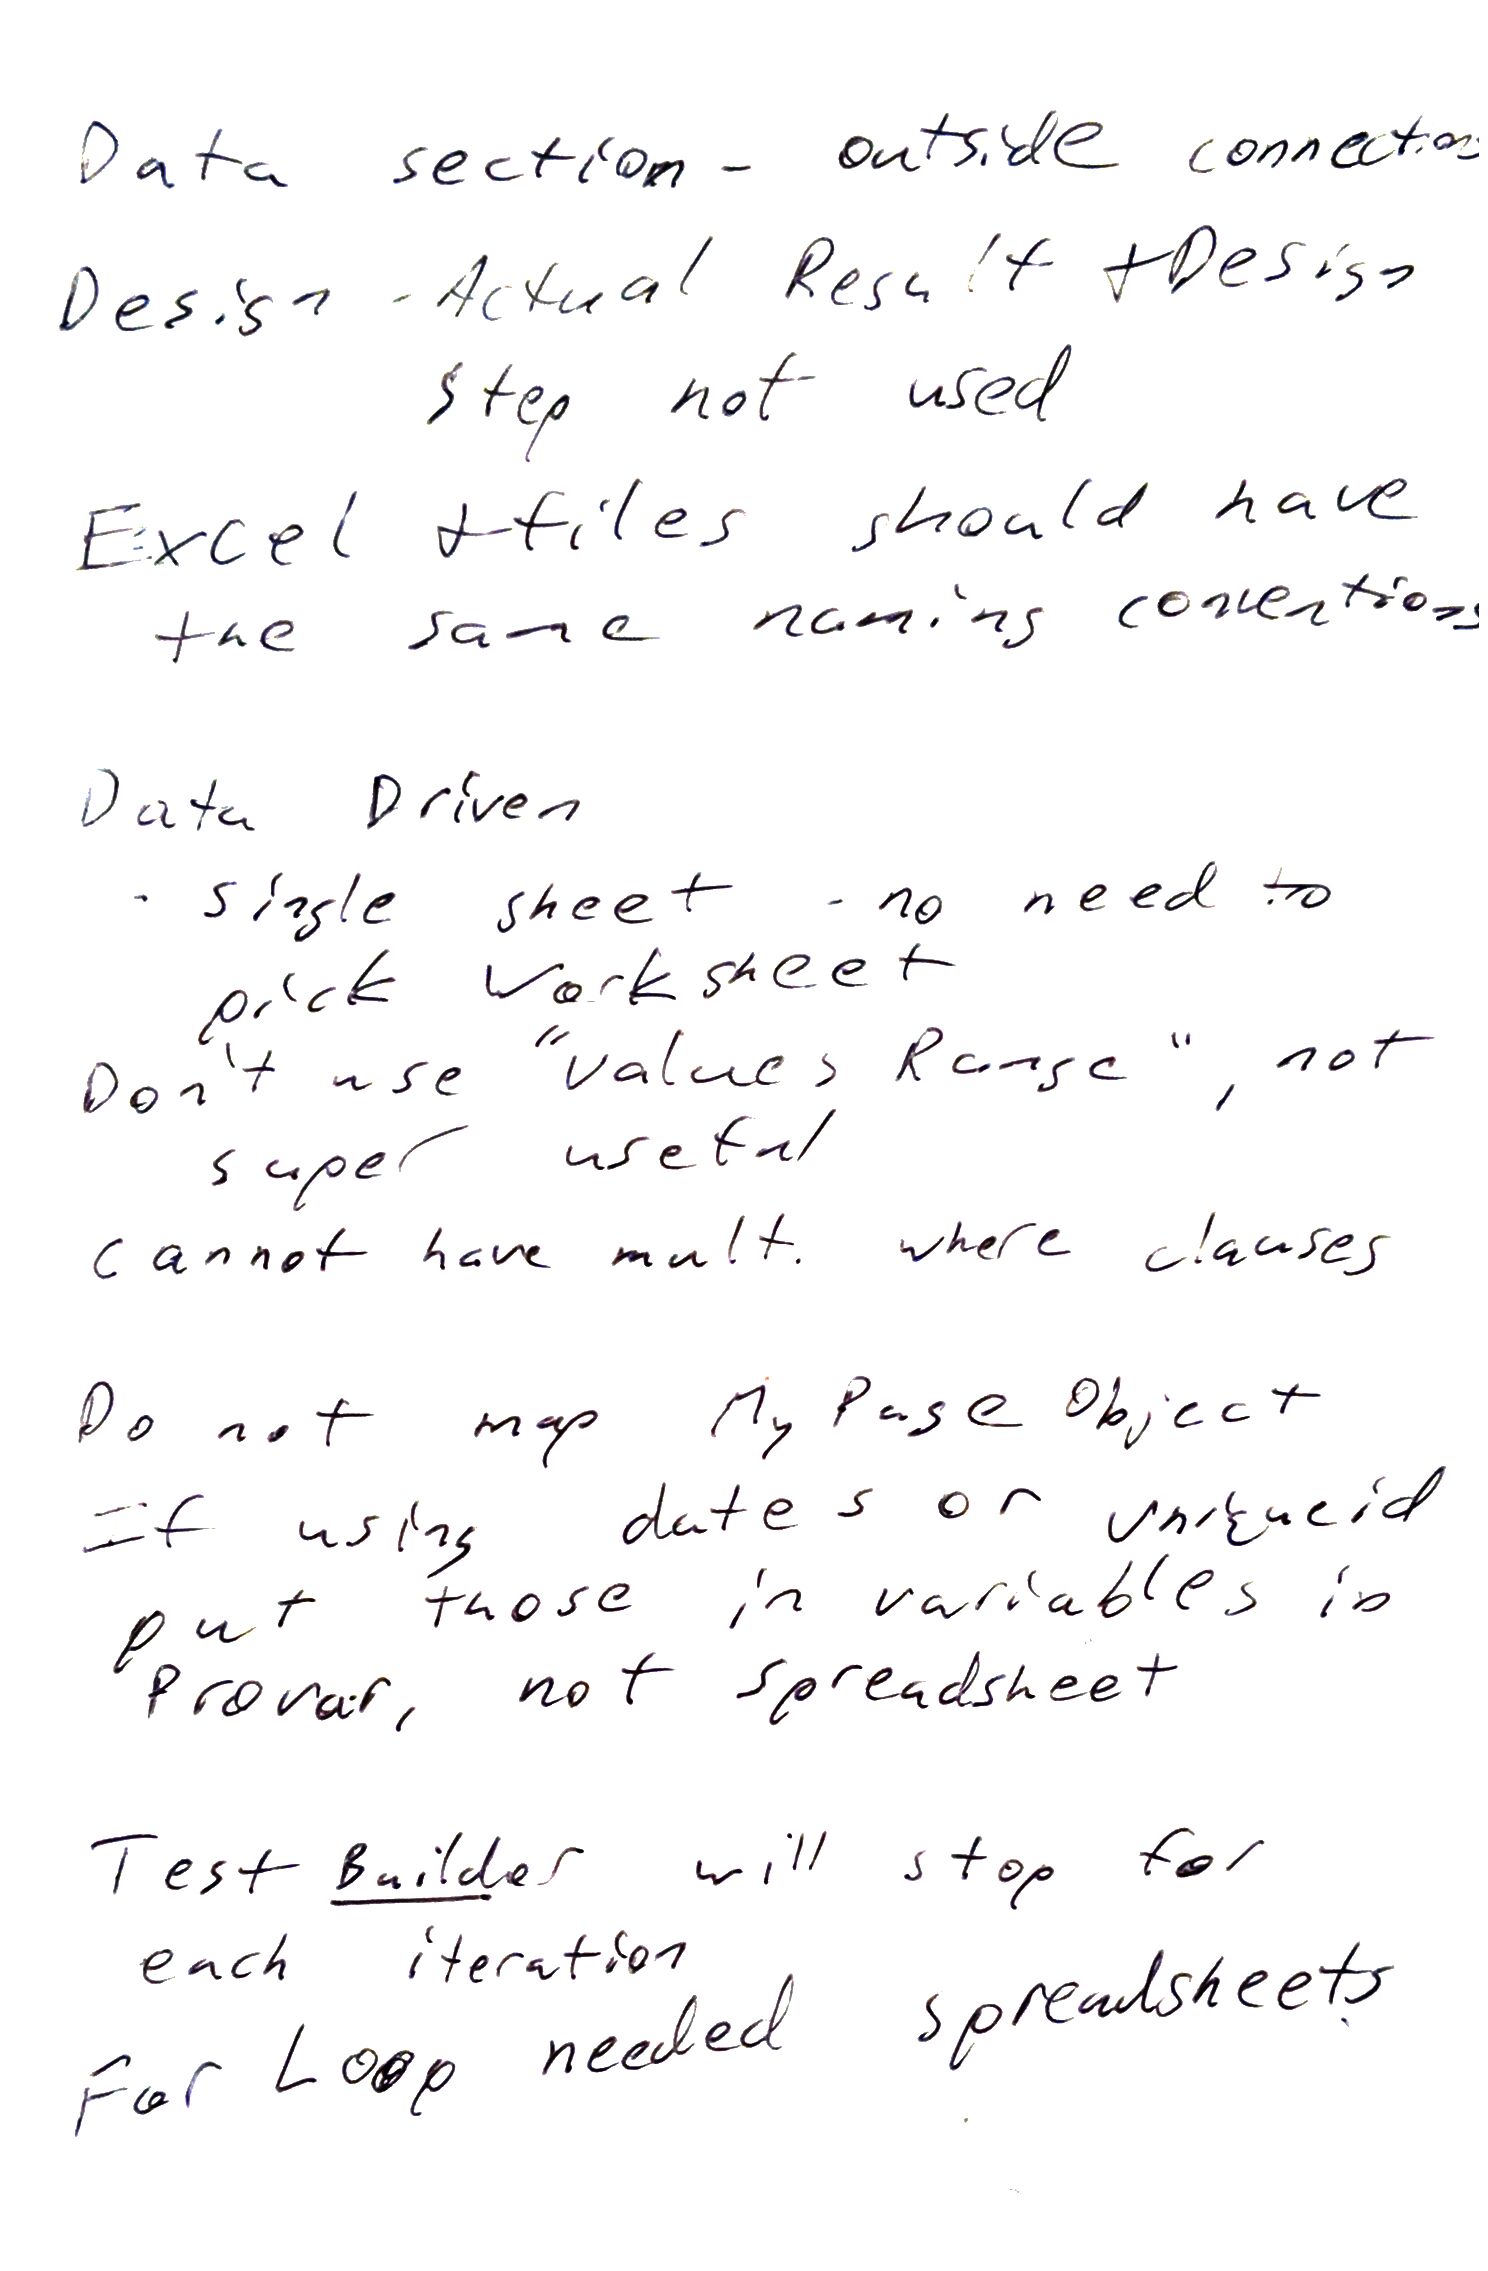 Data section - outside connections
Design - Actual Result + Design
step not used
Excel + files should have
the same naming conventions
Data Driven
- single sheet - no need to
pick worksheet
Don't use "Values Range", not
super useful
Cannot have mult. where clauses
Do not map My Page Object
If using dates or uniqueid
put those in variables in
Provar, not spreadsheet
Test Builder will stop for
each iteration
For Loop needed spreadsheets